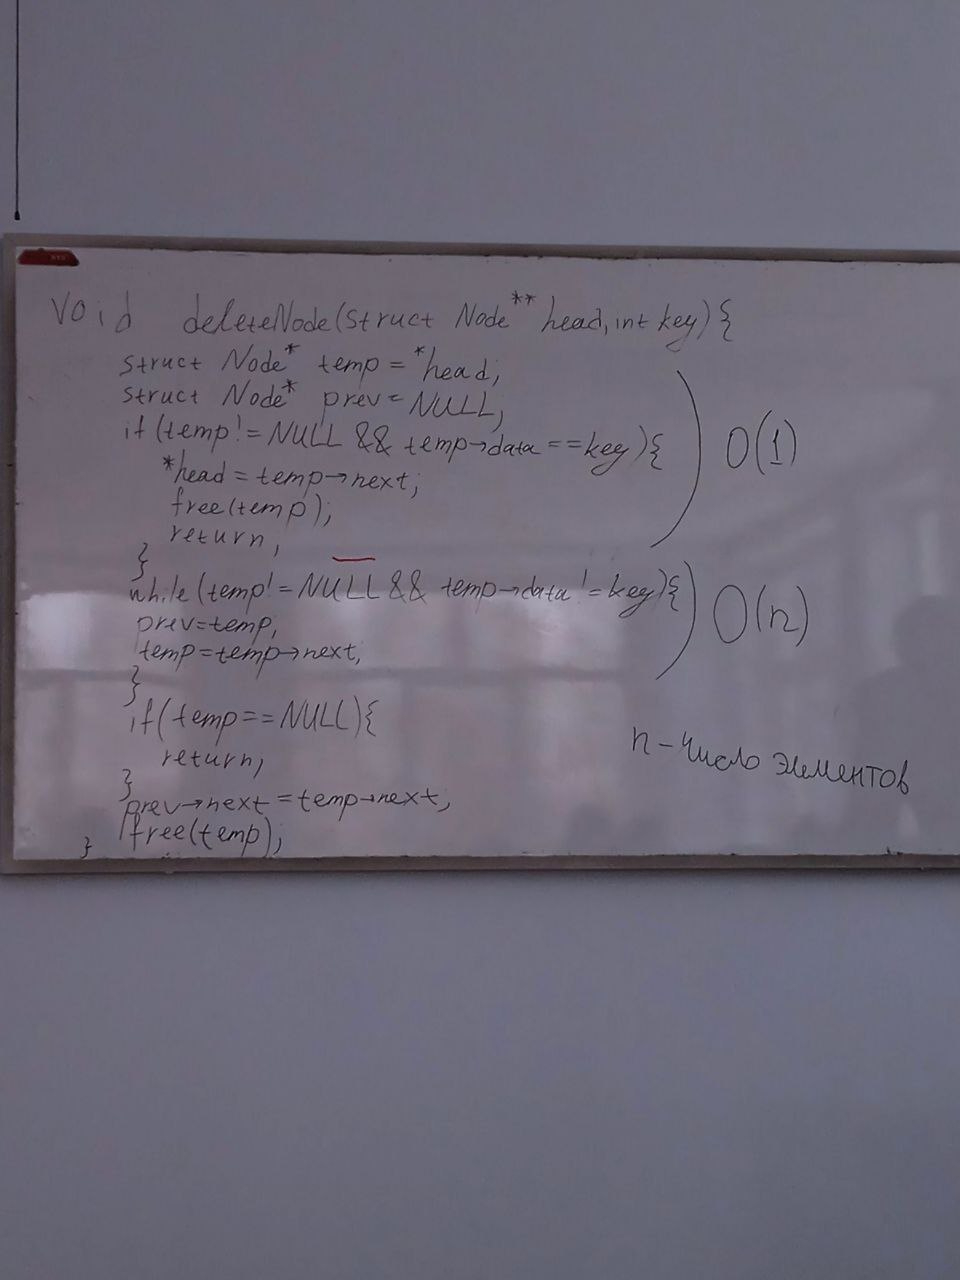 void deleteNode(struct Node** head, int key){
struct Node* temp = *head;
struct Node* prev = NULL;
if(temp != NULL && temp→data == key){
*head = temp→next;
free(temp);
return;
}
O(1)
while(temp != NULL && temp→data != key){
prev=temp;
temp=temp→next;
}
O(n)
if(temp==NULL){
return;
}
n - число элементов
prev→next = temp→next;
free(temp);
}